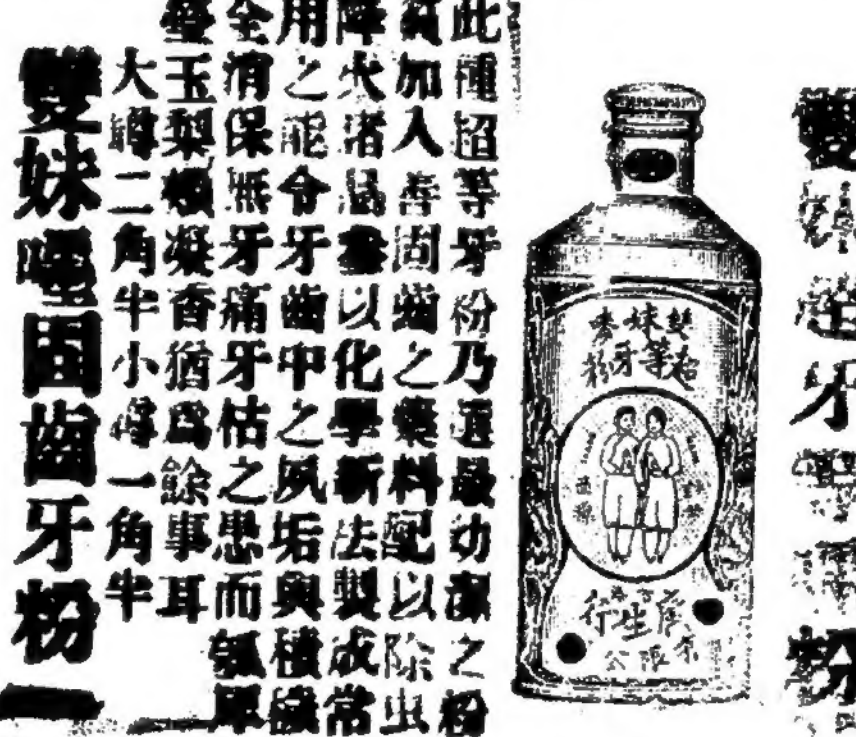 此種超等牙粉乃選最幼潔之粉
質加入善固齒之藥料配以除虫
降火諸品並以化學新法製成常
用之能令牙齒中之夙垢與積穢
全消保無牙痛牙枯之患而瓠犀
疊玉梨頰凝香猶為餘事耳
大罇二角半小罇一角半
雙妹嚜固齒牙粉
雙妹
超等牙粉
廣生行
有限公